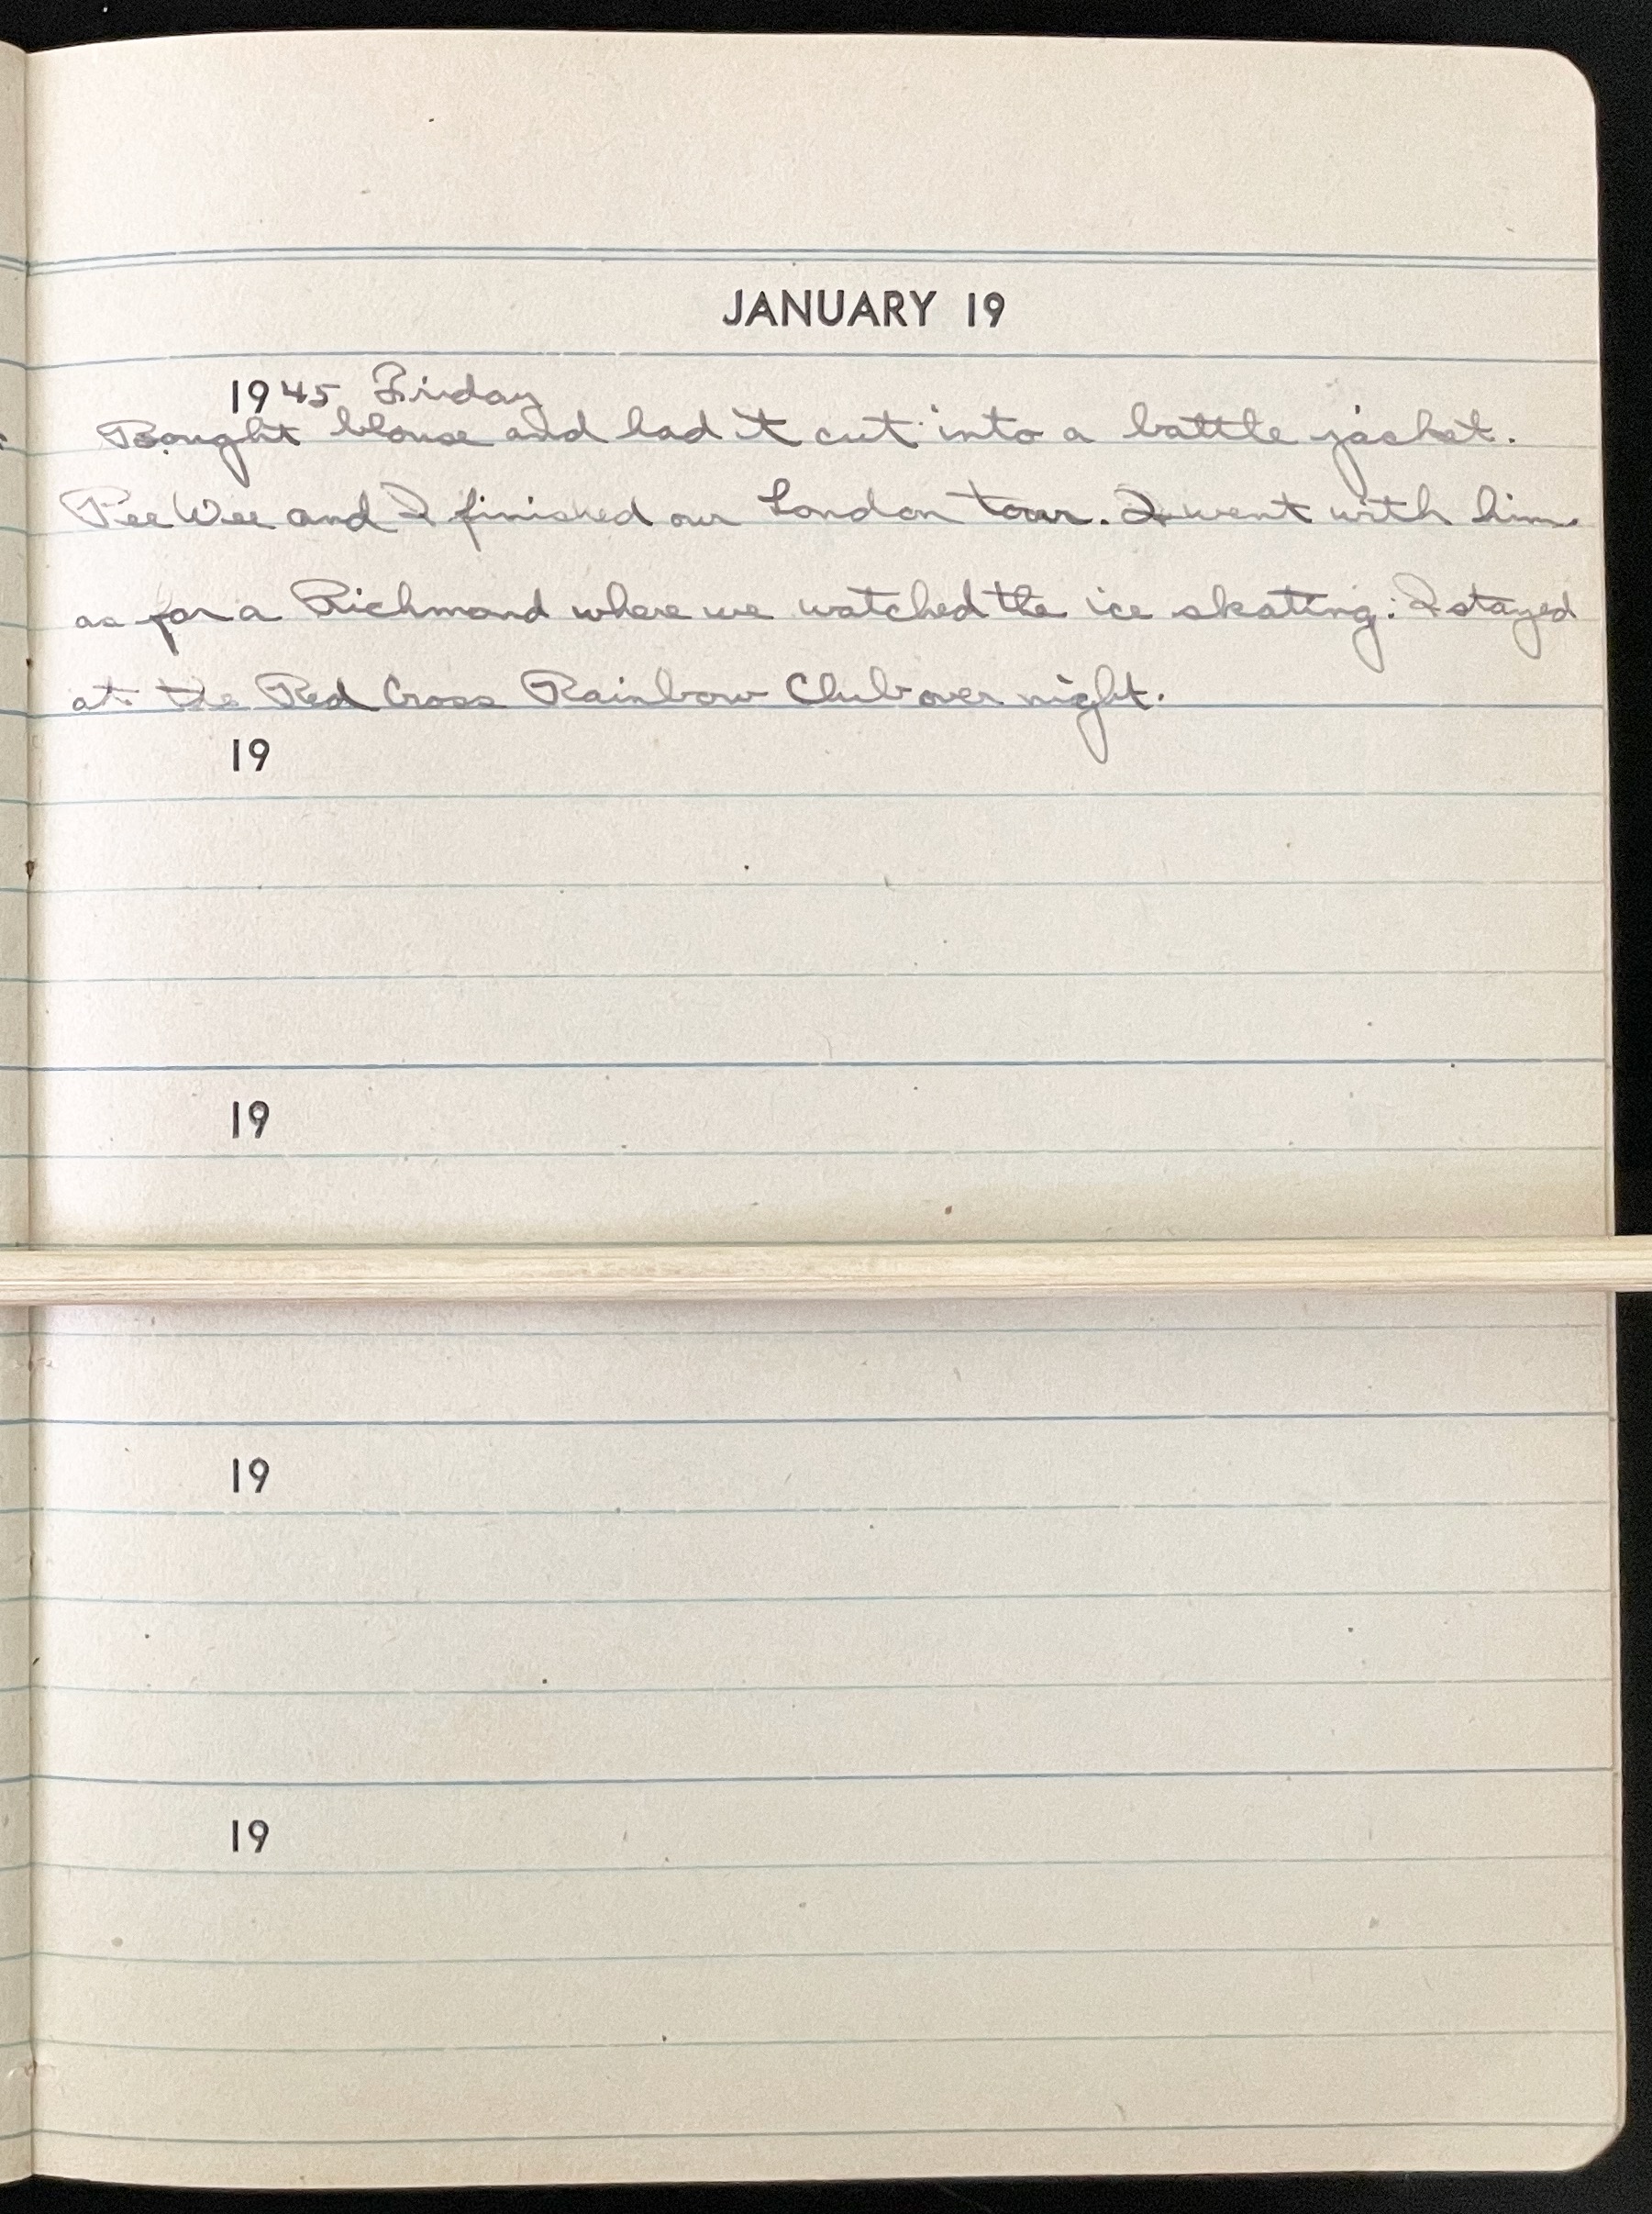 JANUARY 19
1945 Friday
Bought blouse and had it cut into a battle jacket.
Pee Wee and I finished our London tour. I went with him
as far a Richmond where we watched the ice skating. I stayed
at the Red Cross Rainbow Club over night.
19
19
19
19